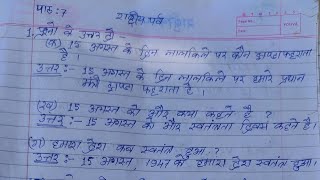 पाठ: 7 राष्ट्रीय पर्व
1. प्रश्नों के उत्तर दो -
(क) 15 अगस्त के दिन लालकिले पर कौन झण्डा फहराता
है ?
उत्तर:- 15 अगस्त के दिन लालकिले पर हमारे प्रधान
मंत्री झण्डा फहराते हैं ।
(ख) 15 अगस्त को और क्या कहते हैं ?
उत्तर:- 15 अगस्त को और स्वतंत्रता दिवस कहते हैं ।
(ग) हमारा देश कब स्वतंत्र हुआ ?
उत्तर:- 15 अगस्त, 1947 को हमारा देश स्वतंत्र हुआ।